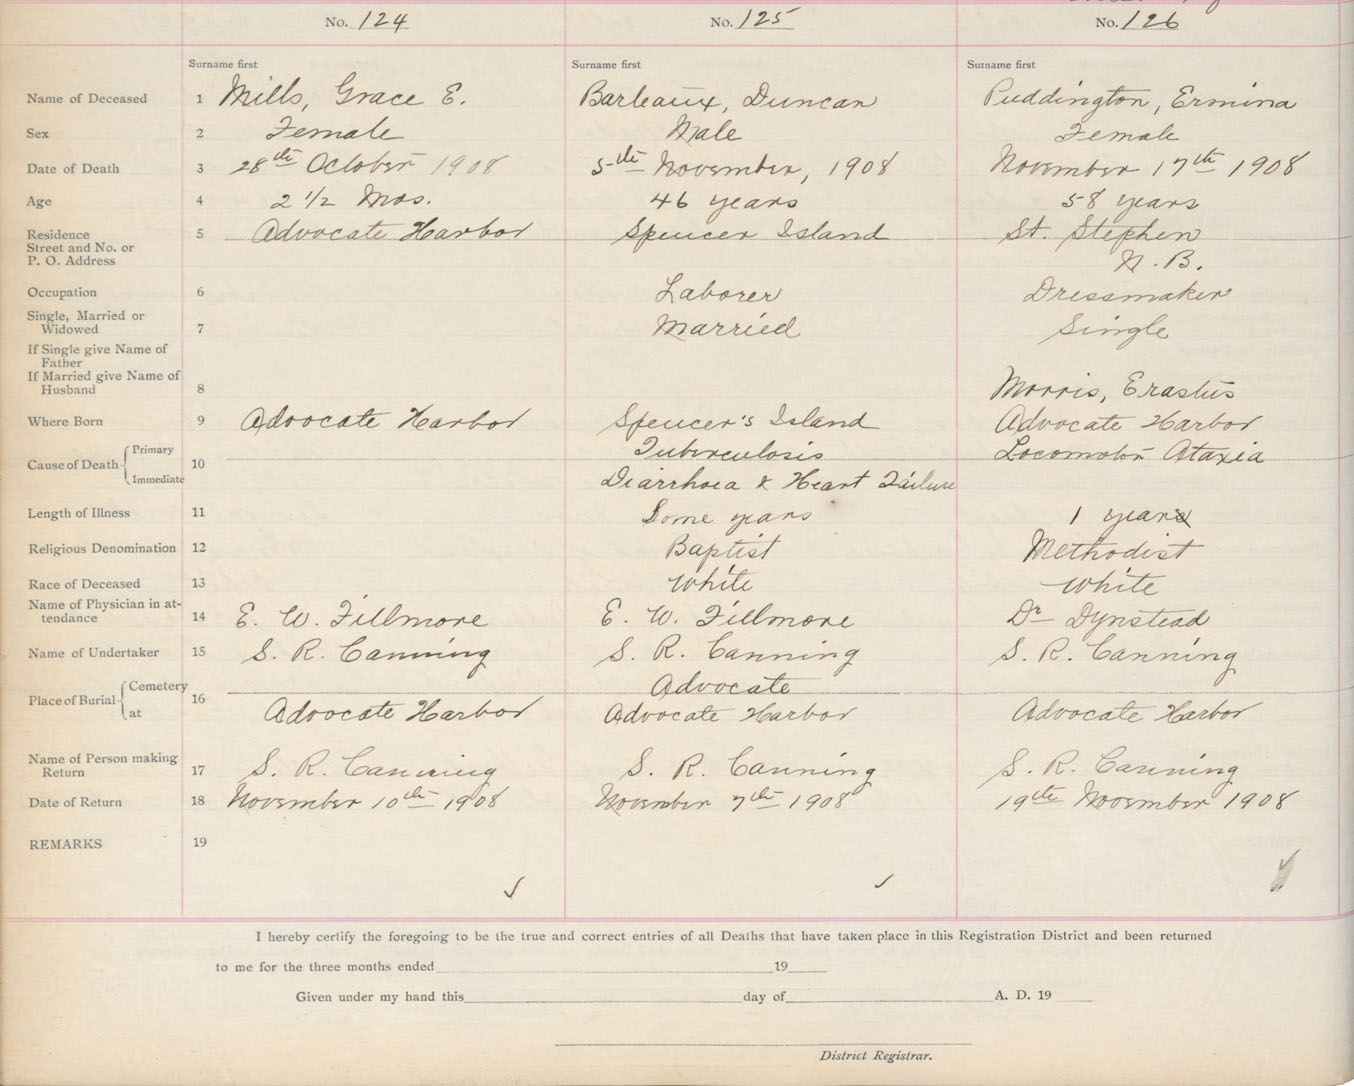 No. 124 No. 125 No. 126
Surname first Surname first Surname first
Name of Deceased 1 Mills, Grace E. Barleaux, Duncan Puddington, Ermina
Sex 2 Female Male Female
Date of Death 3 28th October 1908 5th November, 1908 November 17th 1908
Age 4 2 1/2 Mos. 46 years 58 years
Residence 5 Advocate Harbor Spencer Island St. Stephen
Street and No. or
P. O. Address N. B.
Occupation 6 Laborer Dressmaker
Single, Married or
Widowed 7 Married Single
If Single give Name of
Father
If Married give Name of
Husband 8 Morris, Erastus
Where Born 9 Advocate Harbor Spencer's Island Advocate Harbor
Cause of Death Primary 10 Tuberculosis Locomotor Ataxia
Immediate Diarrhoea & Heart Failure
Length of Illness 11 Some years 1 year
Religious Denomination 12 Baptist Methodist
Race of Deceased 13 White White
Name of Physician in at-
tendance 14 E. W. Fillmore E. W. Fillmore Dr Dynstead
Name of Undertaker 15 S. R. Canning S. R. Canning S. R. Canning
Place of Burial Cemetery 16 Advocate
at Advocate Harbor Advocate Harbor Advocate Harbor
Name of Person making
Return 17 S. R. Canning S. R. Canning S. R. Canning
Date of Return 18 November 10th 1908 November 7th 1908 19th November 1908
REMARKS 19
I hereby certify the foregoing to be the true and correct entries of all Deaths that have taken place in this Registration District and been returned
to me for the three months ended 19
Given under my hand this day of A. D. 19
District Registrar.